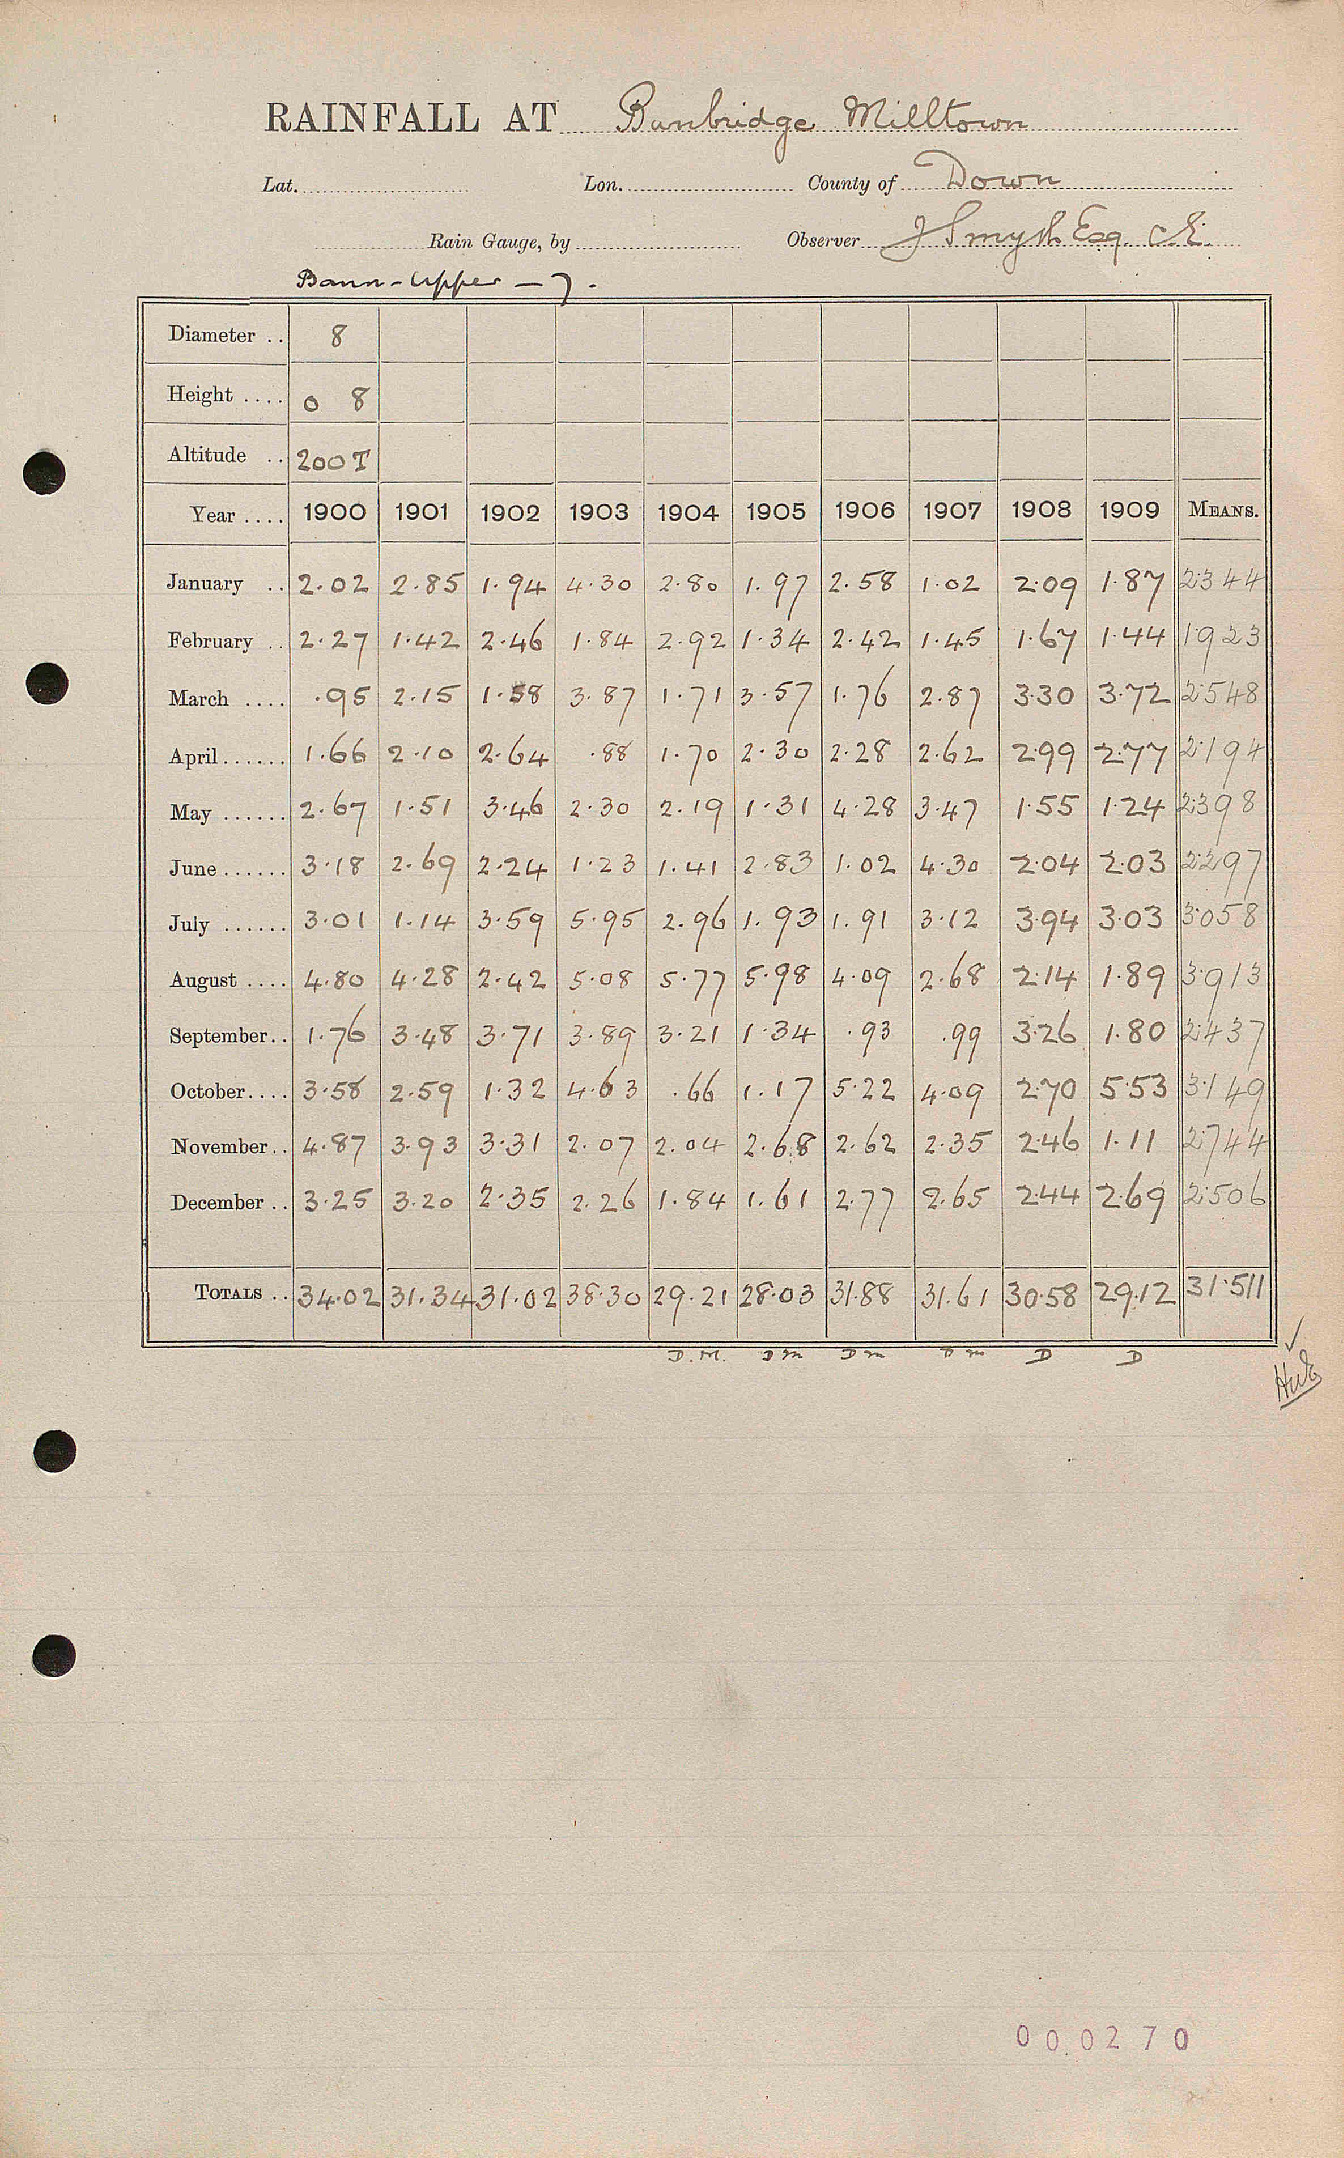 RAINFALL AT Banbridge Milltown
Lat. Lon. County of Down
Rain Gauge, by Observer J Smyth Esq. C.E.
Bann-Upper - 7.
Diameter .. 8
Height .... 0 8
Altitude .. 200T
Year .... 1900 1901 1902 1903 1904 1905 1906 1907 1908 1909 MEANS.
January .. 2.02 2.85 1.94 4.30 2.80 1.97 2.58 1.02 2.09 1.87 2.344
February .. 2.27 1.42 2.46 1.84 2.92 1.34 2.42 1.45 1.67 1.44 1.923
March .... .95 2.15 1.58 3.87 1.71 3.57 1.76 2.87 3.30 3.72 2.548
April...... 1.66 2.10 2.64 .88 1.70 2.30 2.28 2.62 2.99 2.77 2.194
May ...... 2.67 1.51 3.46 2.30 2.19 1.31 4.28 3.47 1.55 1.24 2.398
June...... 3.18 2.69 2.24 1.23 1.41 2.83 1.02 4.30 2.04 2.03 2.297
July ...... 3.01 1.14 3.59 5.95 2.96 1.93 1.91 3.12 3.94 3.03 3.058
August .... 4.80 4.28 2.42 5.08 5.77 5.98 4.09 2.68 2.14 1.89 3.913
September.. 1.76 3.48 3.71 3.89 3.21 1.34 .93 .99 3.26 1.80 2.437
October.... 3.58 2.59 1.32 4.63 .66 1.17 5.22 4.09 2.70 5.53 3.149
November.. 4.87 3.93 3.31 2.07 2.04 2.68 2.62 2.35 2.46 1.11 2.744
December .. 3.25 3.20 2.35 2.26 1.84 1.61 2.77 2.65 2.44 2.69 2.506
TOTALS .. 34.02 31.34 31.02 38.30 29.21 28.03 31.88 31.61 30.58 29.12 31.511
D.M. DM DM DM D D
000270